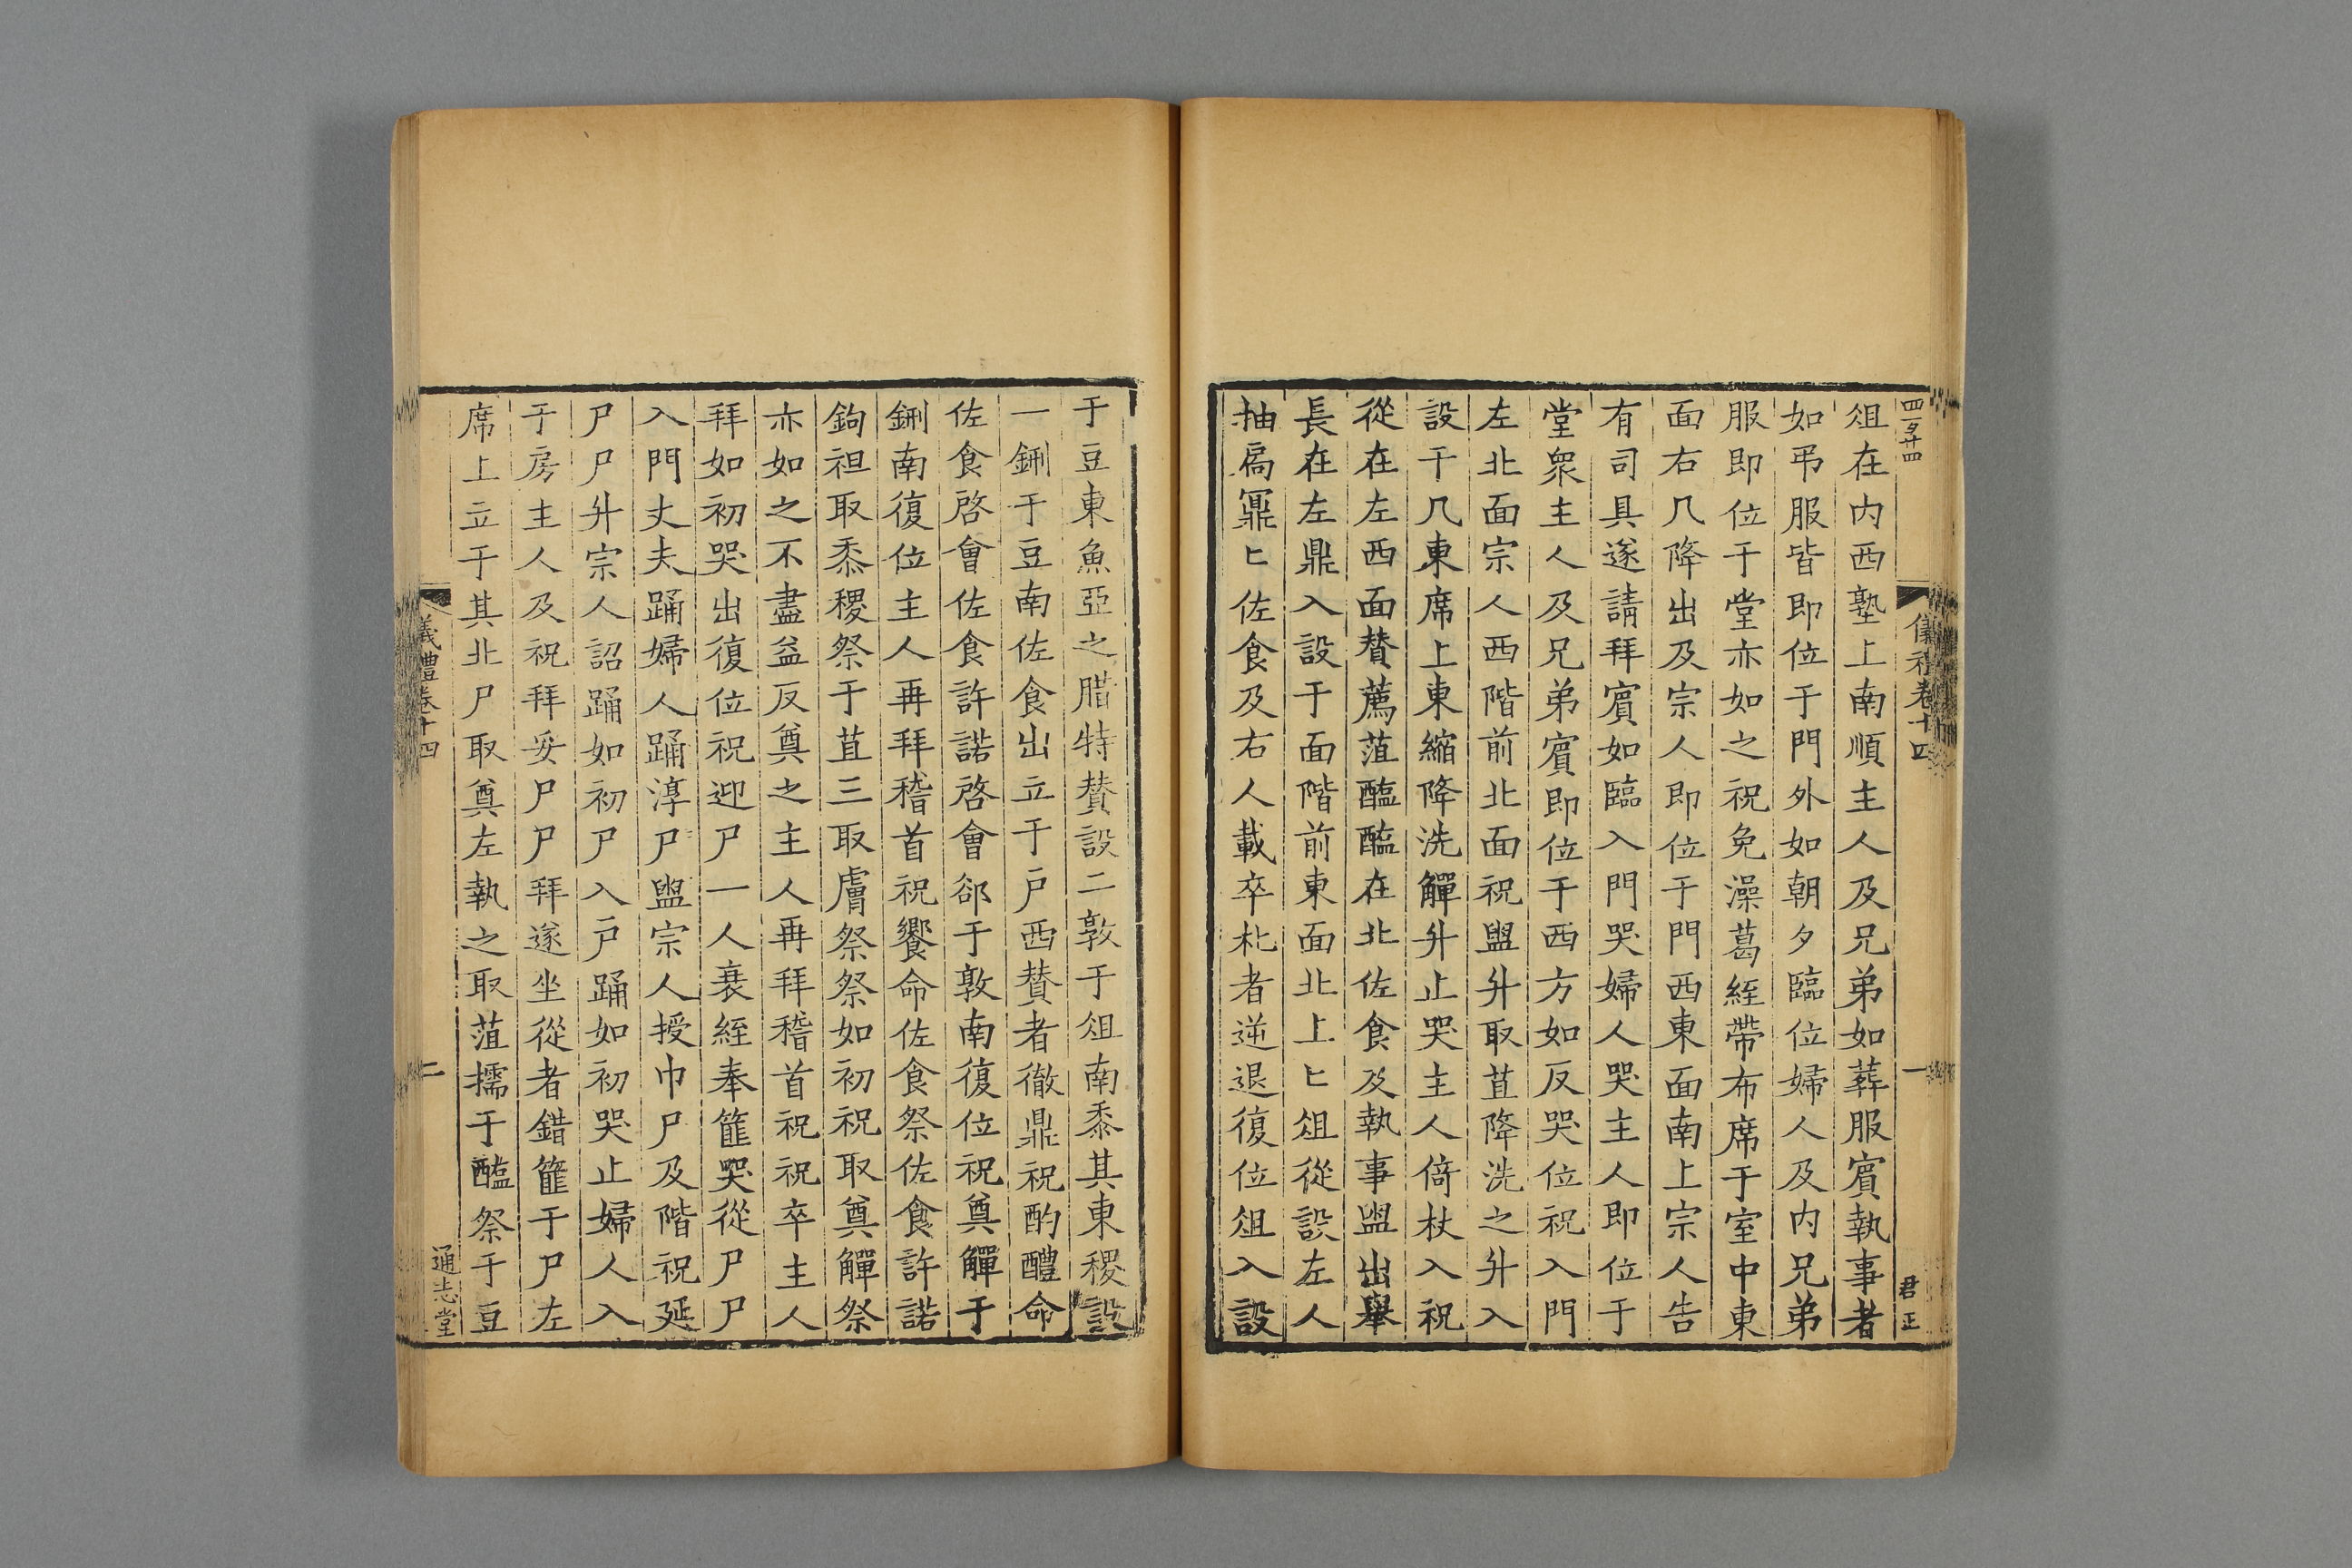 四百廿四
儀禮卷十四
一
君正
俎在内西塾上南順主人及兄弟如葬服賓執事者
如弔服皆即位于門外如朝夕臨位婦人及内兄弟
服即位于堂亦如之祝免澡葛絰帶布席于室中東
面右几降出及宗人即位于門西東面南上宗人告
有司具遂請拜賓如臨入門哭婦人哭主人即位于
堂衆主人及兄弟賓即位于西方如反哭位祝入門
左北面宗人西階前北面祝盥升取苴降洗之升入
設于几東席上東縮降洗觶升止哭主人倚杖入祝
從在左西面賛薦菹醢醢在北佐食及執事盥出舉
長在左鼎入設于面階前東面北上匕俎從設左人
抽扃鼏匕佐食及右人載卒朼者逆退復位俎入設
于豆東魚亞之腊特賛設二敦于俎南黍其東稷設
一鉶于豆南佐食出立于戸西賛者徹鼎祝酌醴命
佐食啓會佐食許諾啓會郤于敦南復位祝奠觶于
鉶南復位主人再拜稽首祝饗命佐食祭佐食許諾
鉤袒取黍稷祭于苴三取膚祭祭如初祝取奠觶祭
亦如之不盡益反奠之主人再拜稽首祝祝卒主人
拜如初哭出復位祝迎尸一人衰絰奉篚哭從尸尸
入門丈夫踊婦人踊淳尸盥宗人授巾尸及階祝延
尸尸升宗人詔踊如初尸入戸踊如初哭止婦人入
于房主人及祝拜妥尸尸拜遂坐從者錯篚于尸左
席上立于其北尸取奠左執之取菹擩于醢祭于豆
儀禮卷十四
二
通志堂